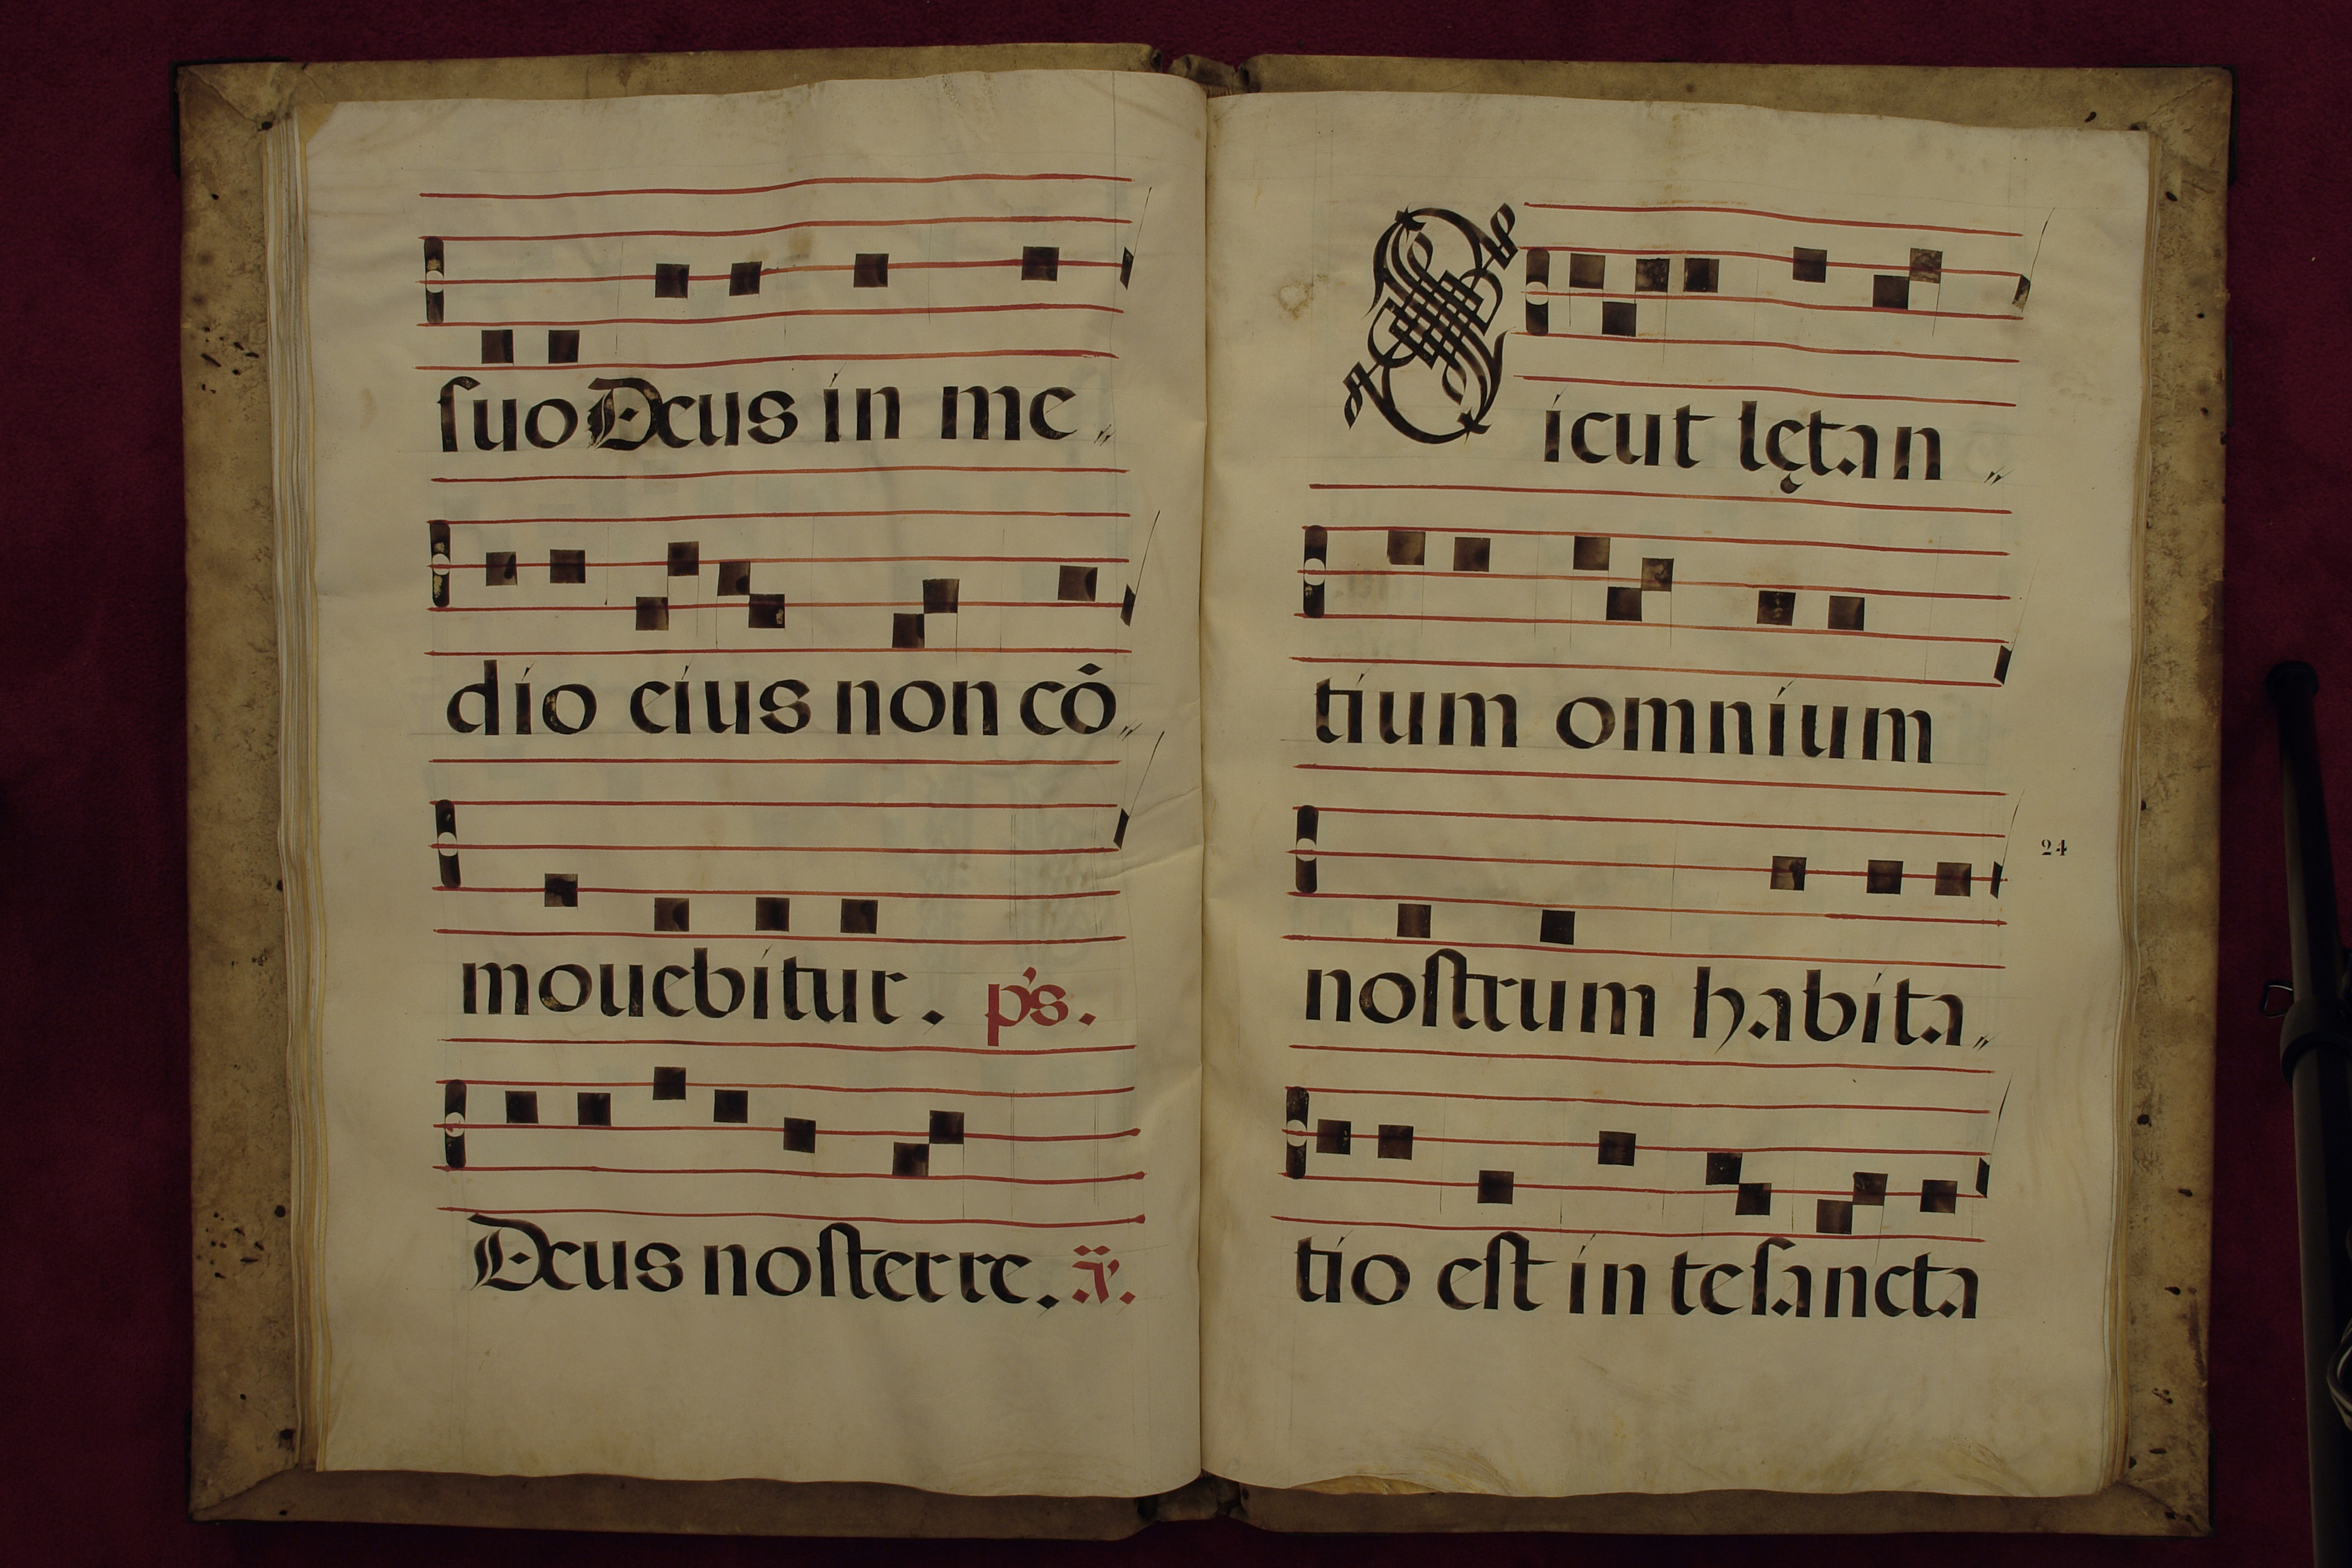 ſuo Deus in me„
dio eius non cō„
mouebitur. p's.
Deus noſter re. ã.
Sicut lętan„
tium omnium
noſtrum habita„
tio eſt in te ſancta
24